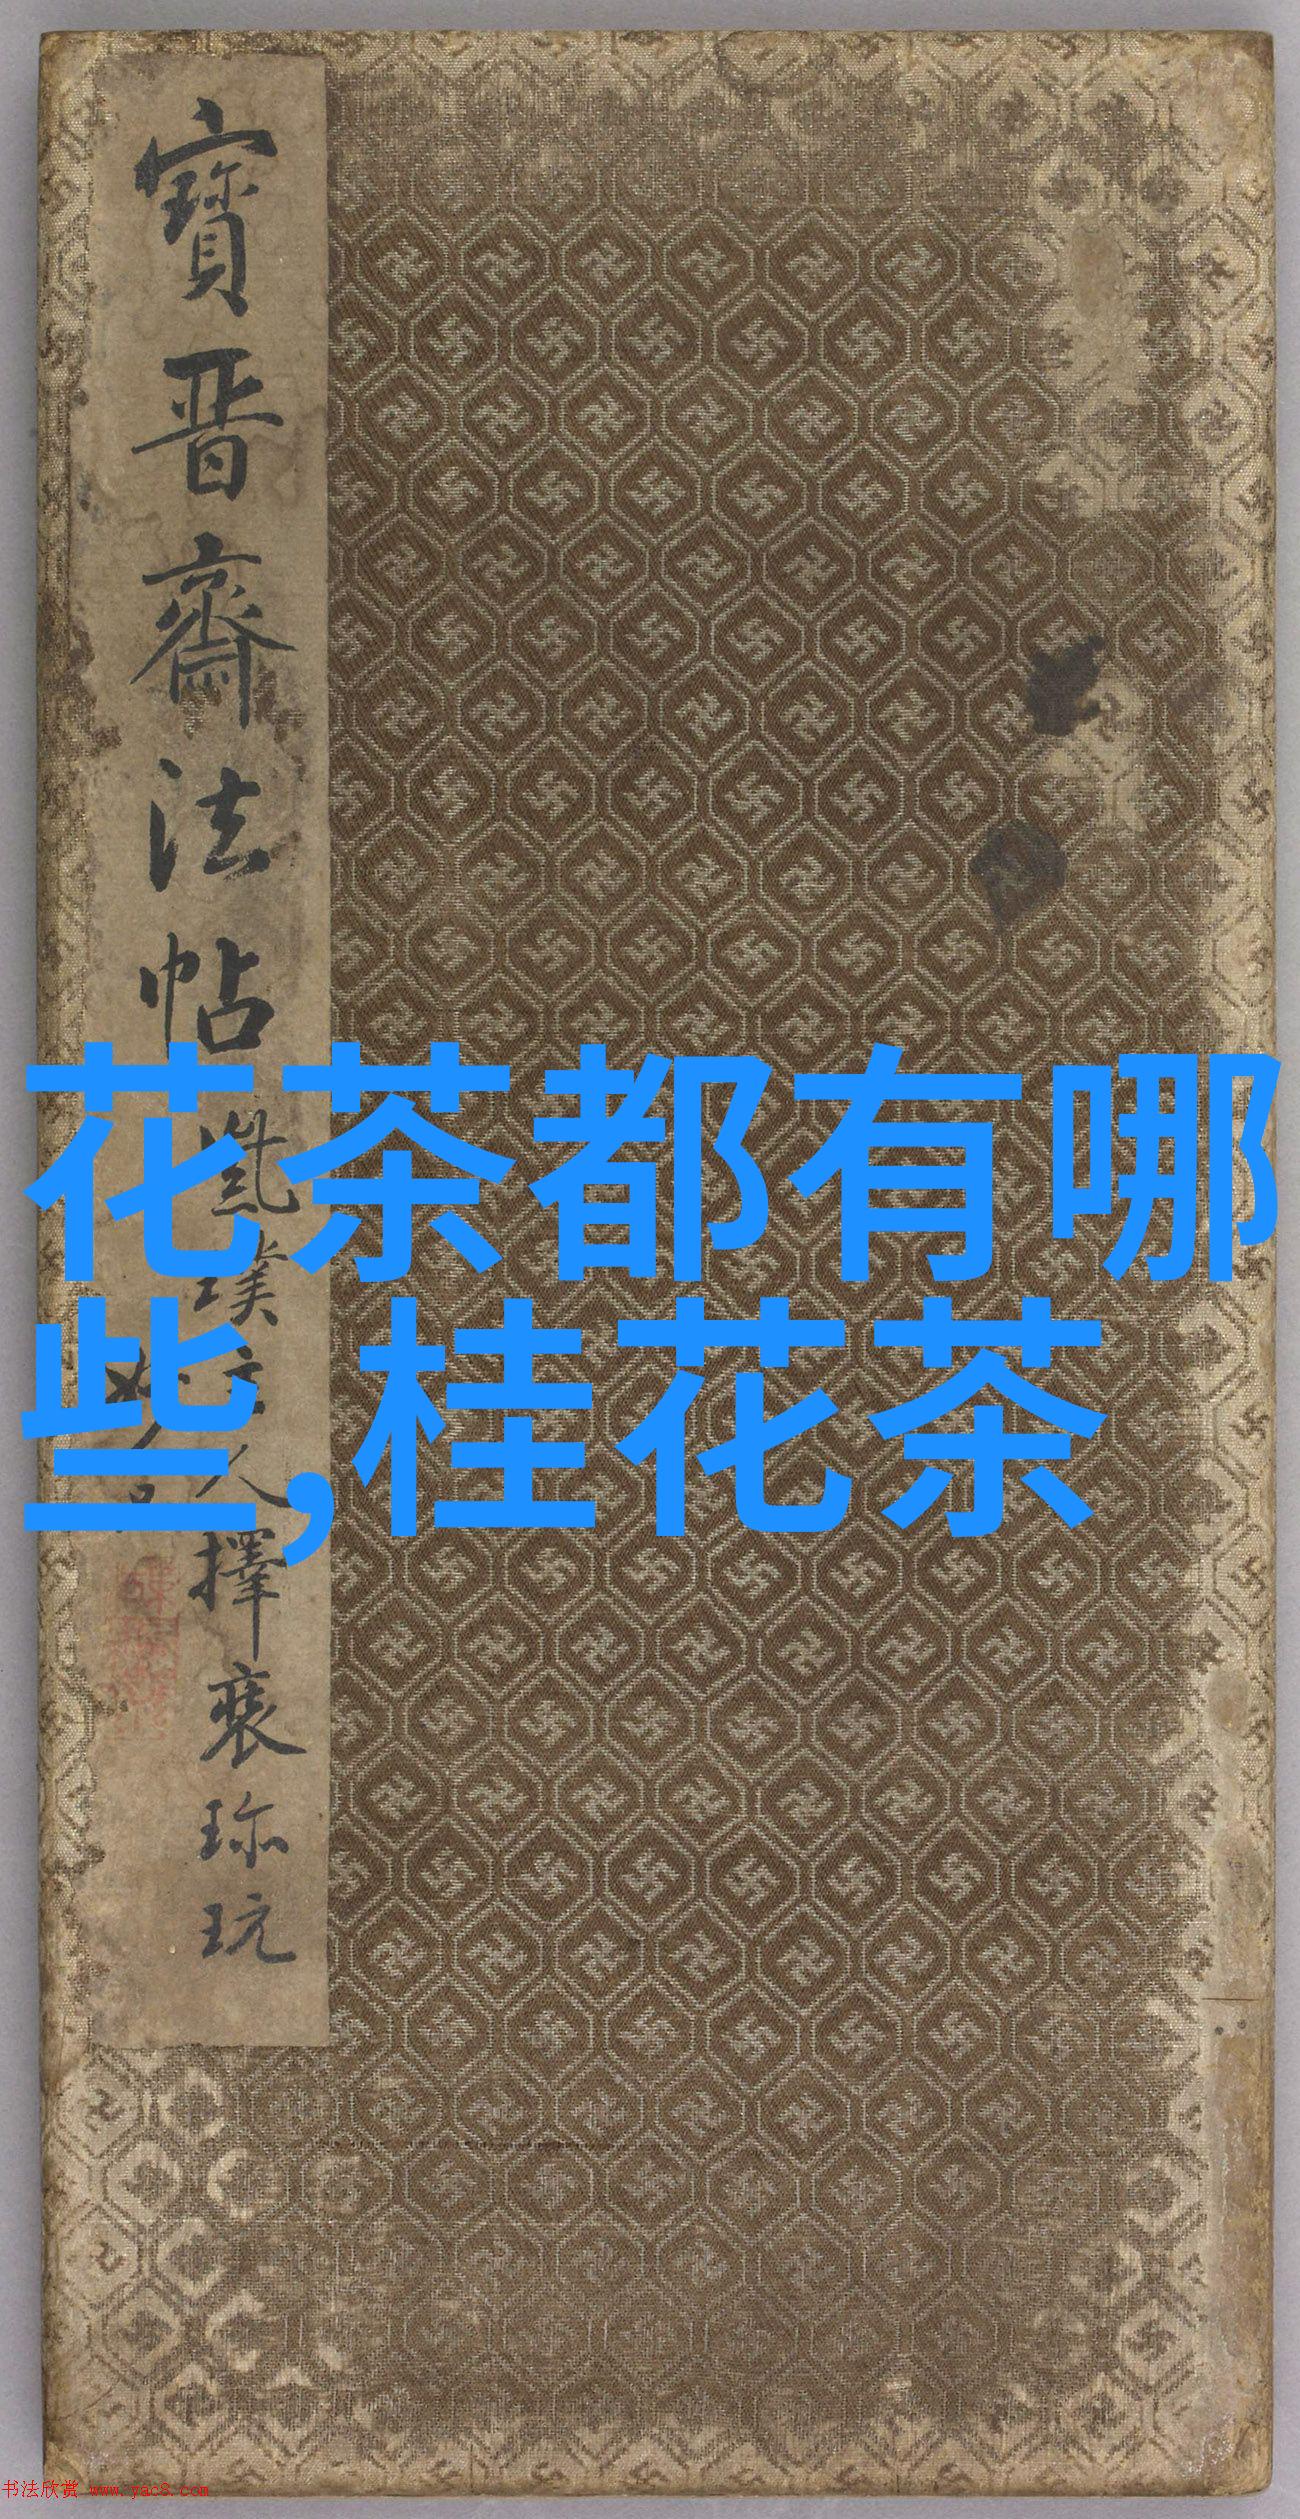 寶晋齋法帖
璞主人擇裘珎玩
花茶都有哪
些,桂花茶
书法欣赏 www.yac8.com